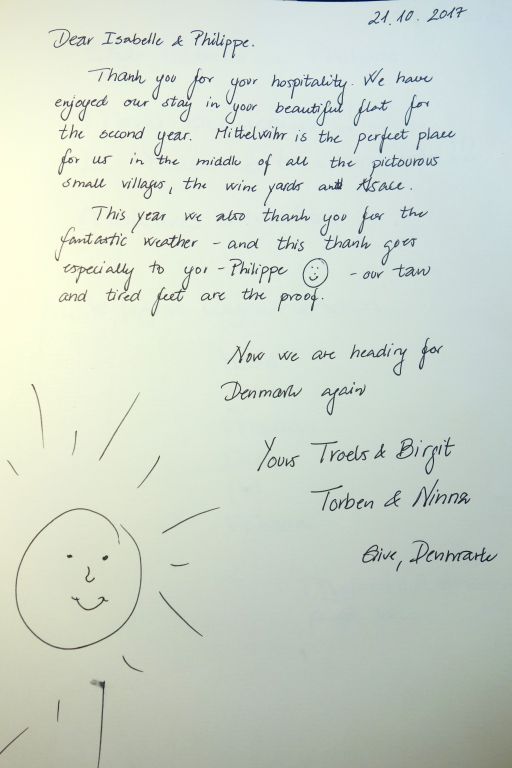 21.10.2017
Dear Isabelle & Philippe.
Thank you for your hospitality. We have
enjoyed our stay in your beautiful flat for
the second year. Mittelwihr is the perfect place
for us in the middle of all the pictourous
small villages, the wine yards and Alsace.
This year we also thank you for the
fantastic weather - and this thank goes
especially to you - Philippe ☺ - our tan
and tired feet are the proof.
Now we are heading for
Denmark again
Yours Troels & Birgit
Torben & Ninna
Give, Denmark